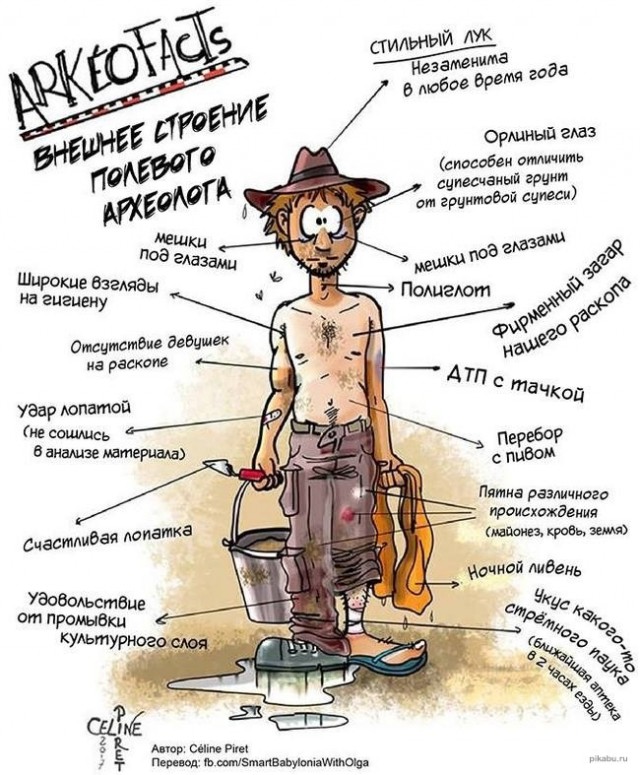 ARKÉOFACTS
ВНЕШНЕЕ СТРОЕНИЕ
ПОЛЕВОГО
АРХЕОЛОГА
СТИЛЬНЫЙ ЛУК
Незаменима
в любое время года
Орлиный глаз
(способен отличить
супесчаный грунт
от грунтовой супеси)
мешки
под глазами
мешки под глазами
Широкие взгляды
на гигиену
Полиглот
Фирменный загар
нашего раскопа
Отсутствие девушек
на раскопе
ДТП с тачкой
Удар лопатой
(не сошлись
в анализе материала)
Перебор
с пивом
Пятна различного
происхождения
(майонез, кровь, земля)
Счастливая лопатка
Ночной ливень
Удовольствие
от промывки
культурного слоя
Укус какого-то
стрёмного паука
(ближайшая аптека
в 2 часах езды)
CÉLINE
PIRET
2017
Автор: Céline Piret
Перевод: fb.com/SmartBabyloniaWithOlga
pikabu.ru